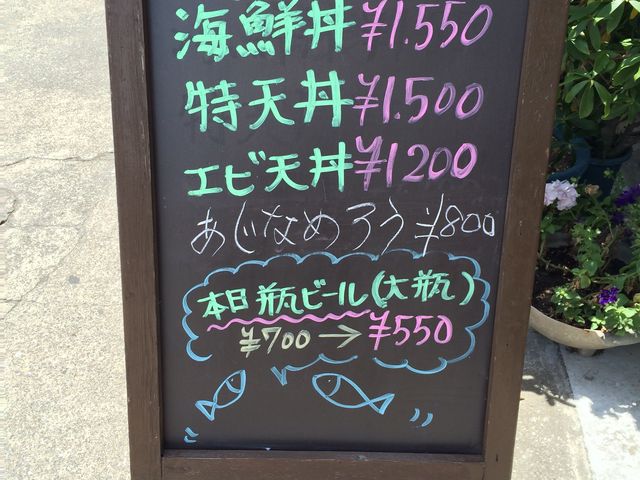 海鮮丼 ¥1.550
特天丼 ¥1.500
エビ天丼 ¥1200
あじなめろう ¥800
本日瓶ビール(大瓶)
¥700→¥550